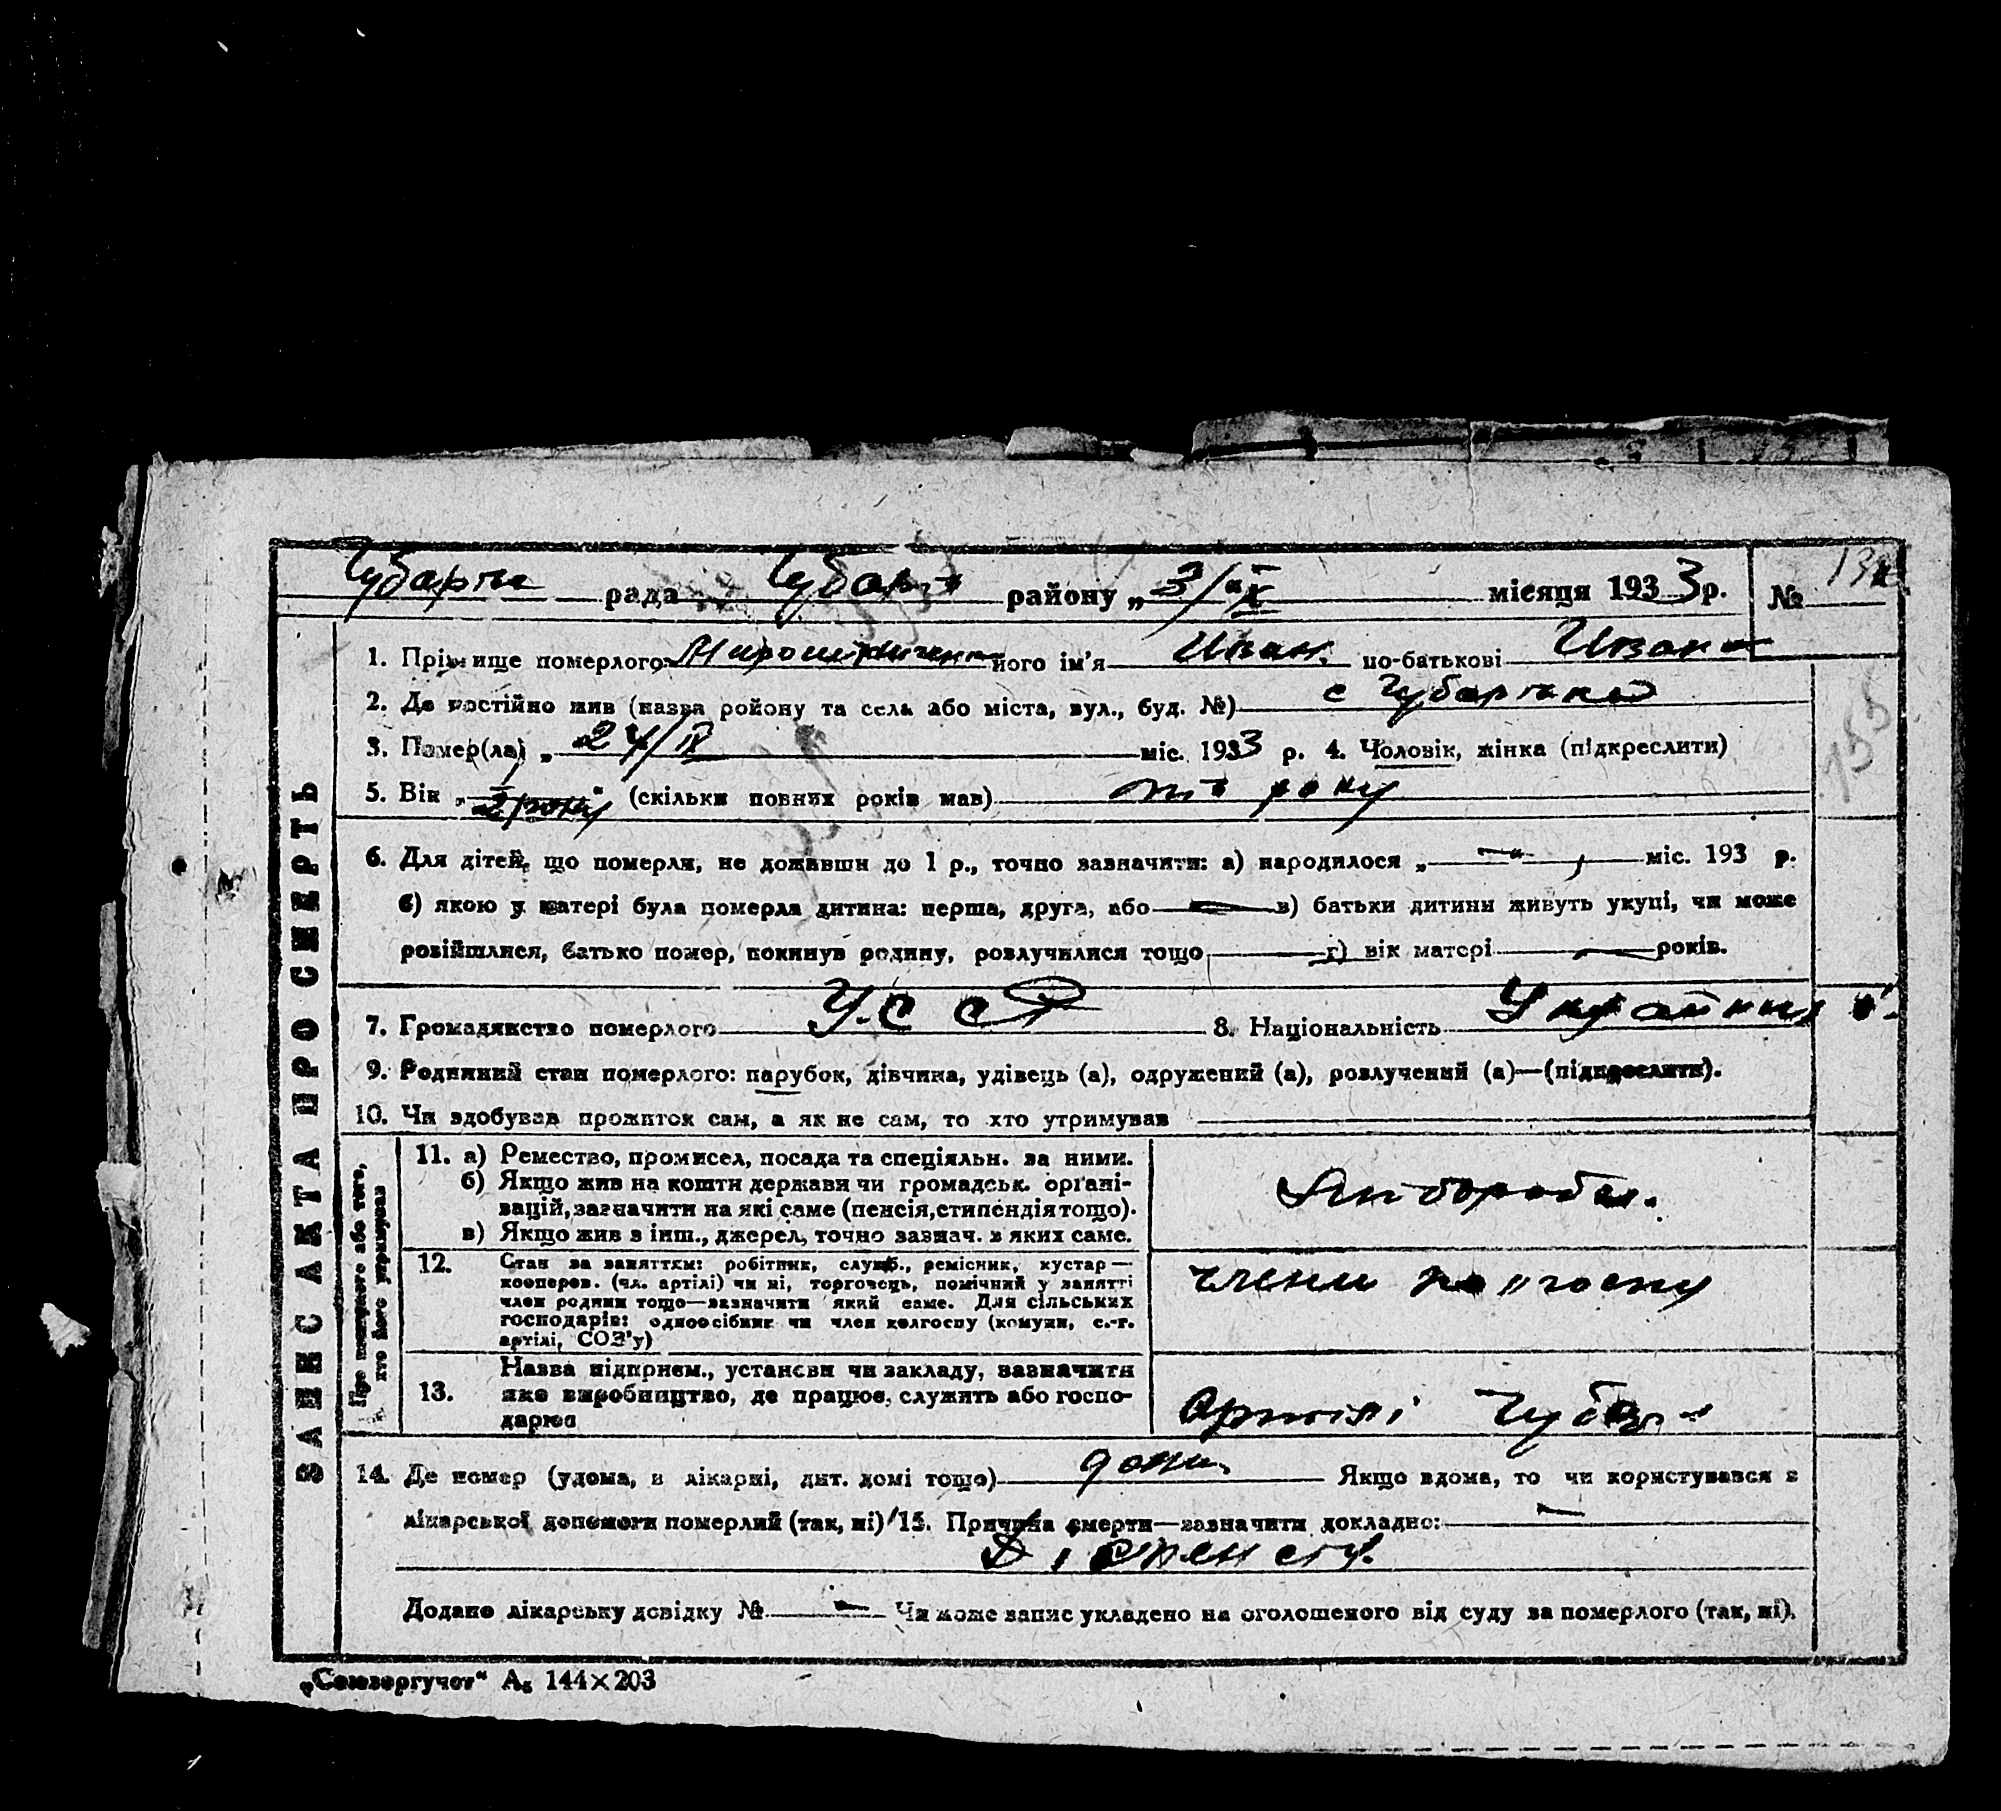 Чубарів рада Чубарів району „3/ІХ місяця 1933 р. №
1. Прізвище померлого Мирошниченко його ім'я Иван по-батькові Иванов
2. Де постійно жив (назва району та села або міста, вул., буд. №) с Чубарівка
3. Помер(ла) „ 24/ міс. 1933 р. 4. Чоловік, жінка (підкреслити)
5. Вік „ 2 роки" (скільки повних років мав) року
6. Для дітей, що померли, не доживши до 1 р., точно зазначити: а) народилося „—" міс. 193 р.
б) якою у матері була померла дитина: перша, друга, або — в) батьки дитини живуть укупі, чи може
розійшлися, батько помер, покинув родину, розлучилися тощо — г) вік матері — років.
7. Громадянство померлого У.С.С.Р 8. Національність
9. Родинний стан померлого: парубок, дівчина, удівець (а), одружений (а), розлучений (а)—(підкреслити).
10. Чи здобував прожиток сам, а як не сам, то хто утримував
ЗАПИС АКТА ПРО СМЕРТЬ
Про померлого або того, хто його утримував
11. а) Ремество, промисел, посада та спеціяльн. за ними.
б) Якщо жив на кошти держави чи громадськ. органі-
зацій, зазначити на які саме (пенсія, стипендія тощо).
в) Якщо жив з інш., джерел, точно зазнач. з яких саме.
12. Стан за заняттям: робітник, служб., ремісник, кустар—
кооперов. (чл. артілі) чи ні, торговець, помічний у занятті
член родини тощо—зазначити який саме. Для сільських
господарів: одноосібник чи член колгоспу (комуни, с.-г.
артілі, СОЗ'у)
члени колгоспу
13. Назва підприєм., установи чи закладу, зазначити
яке виробництво, де працює, служить або госпо-
дарює
Артілі
14. Де помер (удома, в лікарні, дит. домі тощо) дома Якщо вдома, то чи користувався з
лікарської допомоги померлий (так, ні) 15. Причина смерти—зазначити докладно: —
Додано лікарську довідку № — Чи може запис укладено на оголошеного від суду за померлого (так, ні).
„Союзоргучет" А₅ 144×203